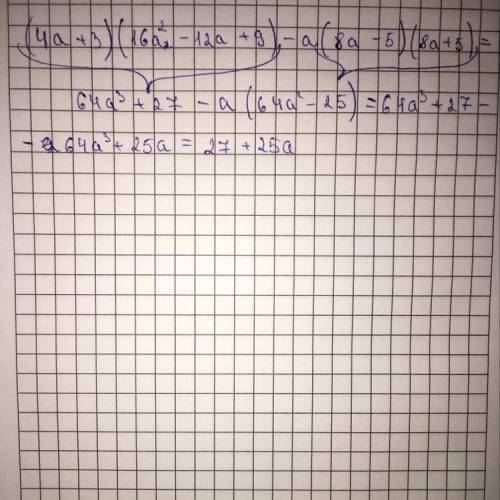 (4a+3)(16a²-12a+9)-a(8a-5)(8a+5)=
64a³+27-a(64a²-25)=64a³+27-
-64a³+25a=27+25a